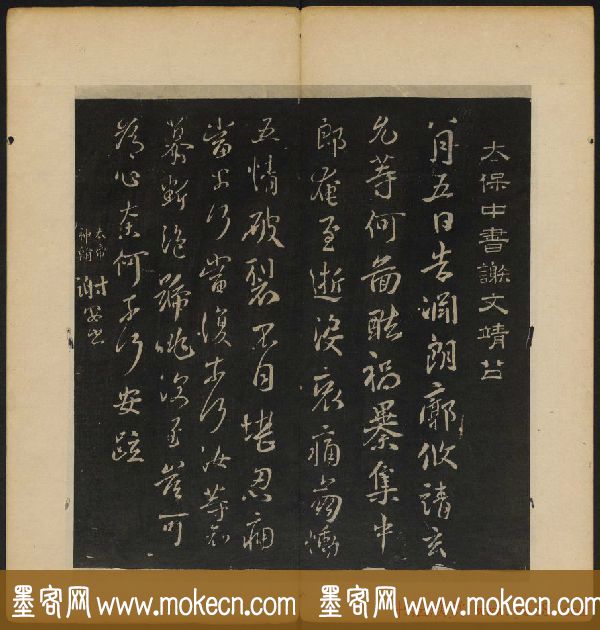 太保中書謝文靖書
八月五日告淵朗廓攸靖玄
允等何圖酷禍暴集中
郎奄至逝沒哀痛崩慟
五情破裂不自堪忍痛
當奈何當復奈何汝等哀
慕斷絕號咷深至豈可
為心奈何奈何安疏
謝安
墨客网 www.mokecn.com 墨客网 www.mokecn.com